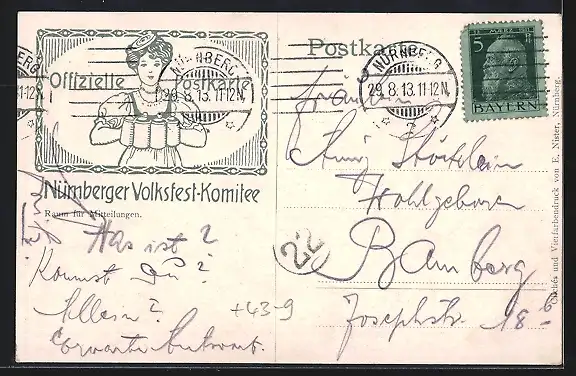 Offizielle Postkarte
Nürnberger Volksfest-Komitee
Raum für Mitteilungen.
Was ist?
Kommst Du?
Allein?
Erwarte Antwort.
+43-9
22
Postkarte
NÜRNBERG
29.8.13.11-12N.
2
NÜRNBERG
29.8.13.11-12N.
5
BAYERN
Fräulein
Wohlgeboren
Bamberg
Josephstr. 18 b
Clichés und Vierfarbendruck von E. Nister, Nürnberg.